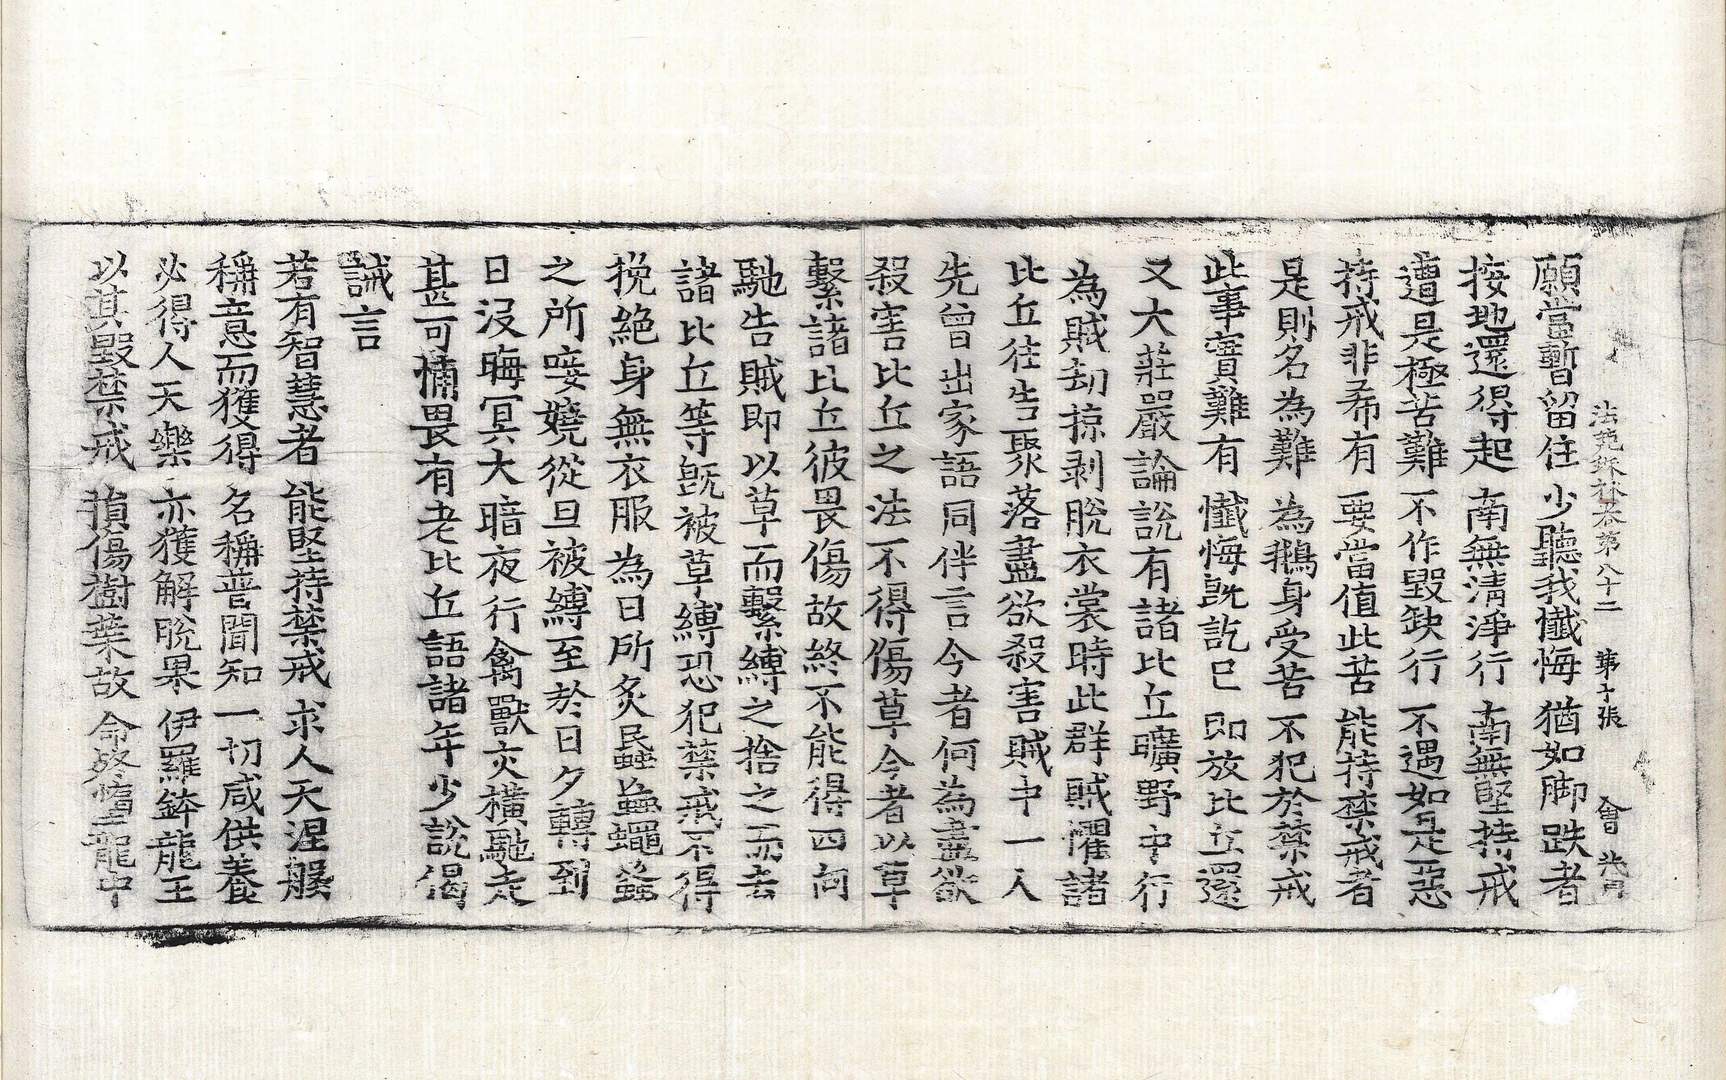 法苑珠林卷第八十二 第十張 會
願當暫留住 少聽我懺悔 猶如脚跌者
按地還得起 南無清淨行 南無堅持戒
遭是極苦難 不作毀缺行 不遇如是惡
持戒非希有 要當值此苦 能持禁戒者
是則名為難 為鵝身受苦 不犯於禁戒
此事實難有 懺悔既訖已 即放比丘還
又大莊嚴論說有諸比丘曠野中行
為賊刼掠剥脫衣裳時此群賊懼諸
比丘往告聚落盡欲殺害賊中一人
先曾出家語同伴言今者何為盡欲
殺害比丘之法不得傷草今者以草
繫諸比丘彼畏傷故終不能得四向
馳告賊即以草而繫縛之捨之而去
諸比丘等旣被草縛恐犯禁戒不得
挽絕身無衣服為日所炙蚊蝱蠅蚤
之所唼嬈從旦被縛至於日夕轉到
日没晦冥大暗夜行禽獸交橫馳走
甚可怖畏有老比丘語諸年少說偈
誡言
若有智慧者 能堅持禁戒 求人天涅槃
稱意而獲得 名稱普聞知 一切咸供養
必得人天樂 亦獲解脫果 伊羅鉢龍王
以其毀禁戒 損傷樹葉故 命終墮龍中